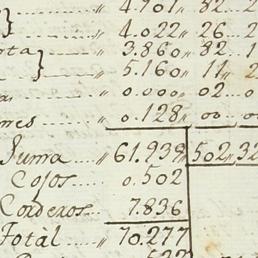 4.701,, 82...2
} ,, 4.022,, 26...2
rta ,, 3.860,, 82...1
} ,, 5.160,, 11,, 2
a ,, 0.000,, 02...0
nes ,, 0.128,, 00...0
Suma ,, 61.939,, 502,, 32
Cojos 0.502
Corderos 7.836
Totàl ,, 70.277